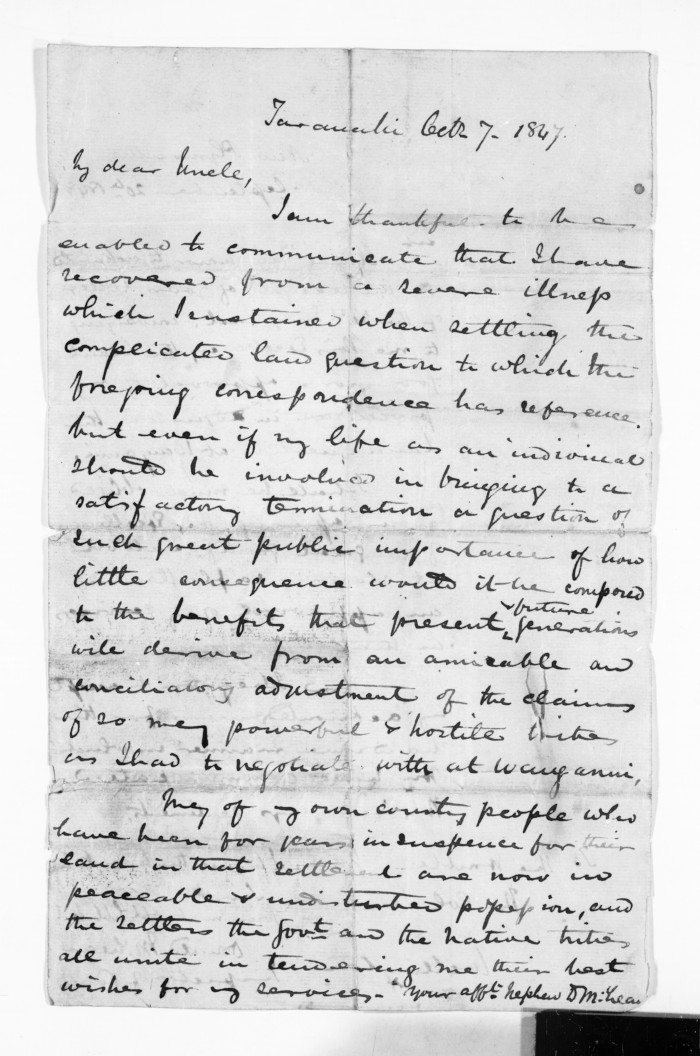 Taranaki Octr 7- 1847.
My dear Uncle,
I am thankful to be
enabled to communicate that I have
recovered from a severe illness
which I sustained when settling the
complicated land question to which the
foregoing correspondence has reference.
but even if my life as an individual
should be involved in bringing to a
satisfactory termination a question of
such great public importance of how
little consequence would it be compared
to the benefits that present & future generations
will derive from an amicable and
conciliatory adjustment of the claims
of so many powerful & hostile tribes
as I had to negotiate with at Wanganui,
Many of my own country people who
have been for years in suspence for their
land in that settlement are now in
peaceable & undisturbed possession, and
the settlers the Govt and the native tribes
all unite in tendering me their best
wishes for my services- Your afft nephew D McLean